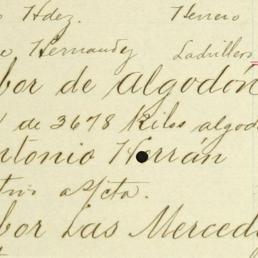 Hdez. Herrero
Hernandez Ladrillero
bor de algodón
de 3678 Kilos algod
ntonio Herrán
a/cta.
bor Las Merced